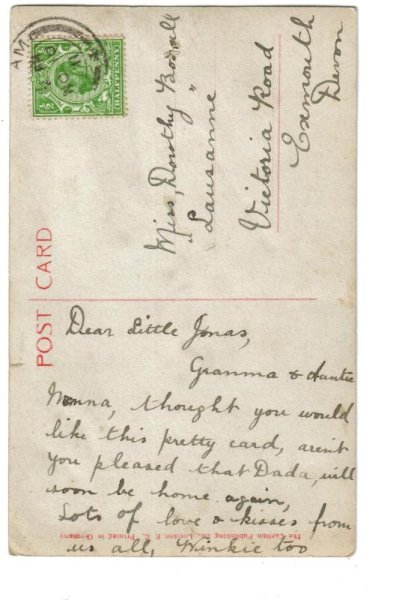 POST CARD
HALFPENNY
AM
Miss, Dorothy
"Lausanne"
Victoria Road
Exmouth
Devon
Dear Little Jonas,
Granma & Auntie
thought you would
like this pretty card, arent
you pleased that Dada, will
soon be home again,
Lots of love & kisses from
us all, Winkie too
The Carlton Publishing Co., London E. C. Printed in Germany